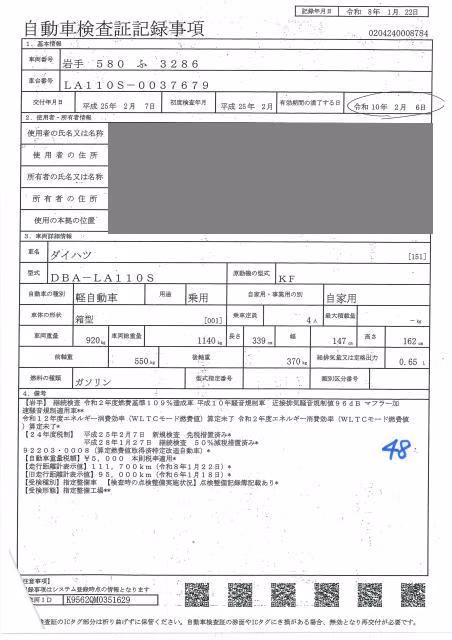 記録年月日 令和 8年 1月 22日
自動車検査証記録事項
0204240008784
1. 基本情報
車両番号 岩手 580 ふ 3286
車台番号 LA110S-0037679
交付年月日 平成 25年 2月 7日 初度検査年月 平成 25年 2月 有効期間の満了する日 令和 10年 2月 6日
2. 使用者・所有者情報
使用者の氏名又は名称
使用者の住所
所有者の氏名又は名称
所有者の住所
使用の本拠の位置
3. 車両詳細情報
車名 ダイハツ [151]
型式 DBA-LA110S 原動機の型式 KF
自動車の種別 軽自動車 用途 乗用 自家用・事業用の別 自家用
車体の形状 箱型 [001] 乗車定員 4人 最大積載量 -kg
車両重量 920kg 車両総重量 1140kg 長さ 339cm 幅 147cm 高さ 162cm
前軸重 550kg 後軸重 370kg 総排気量又は定格出力 0.65 L
燃料の種類 ガソリン 型式指定番号 類別区分番号
4. 備考
【岩手】 継続検査 令和2年度燃費基準109%達成車 平成10年騒音規制車 近接排気騒音規制値96dB マフラー加
速騒音規制適用車**
令和12年度エネルギー消費効率（WLTCモード燃費値）算定未了 令和2年度エネルギー消費効率（WLTCモード燃費値
）算定未了*
【24年度税制】 平成25年2月7日 新規検査 免税措置済み*
平成28年1月27日 継続検査 50%減税措置済み*
92203・0008（算定燃費値取得済特定改造自動車）*
【自動車重量税額】¥5,000 本則税率適用*
【走行距離計表示値】111,700km（令和8年1月22日）*
【旧走行距離計表示値】95,000km（令和6年1月18日）*
【受検種別】指定整備車 【検査時の点検整備実施状況】点検整備記録簿記載あり*
【受検形態】指定整備工場**
48
注意事項】
記録事項はシステム登録時点の情報となります
K9562QM0351629
検査証のICタグ部分は折り曲げずに保管ください。自動車検査証の券面やICタグにき損がある場合、無効となり再交付が必要です。